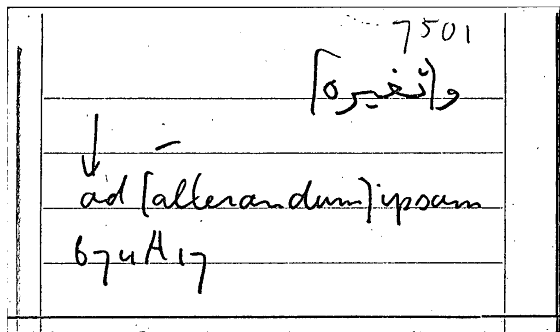 7501
و[تغيره]
ad [alterandum] ipsam
674 A 17